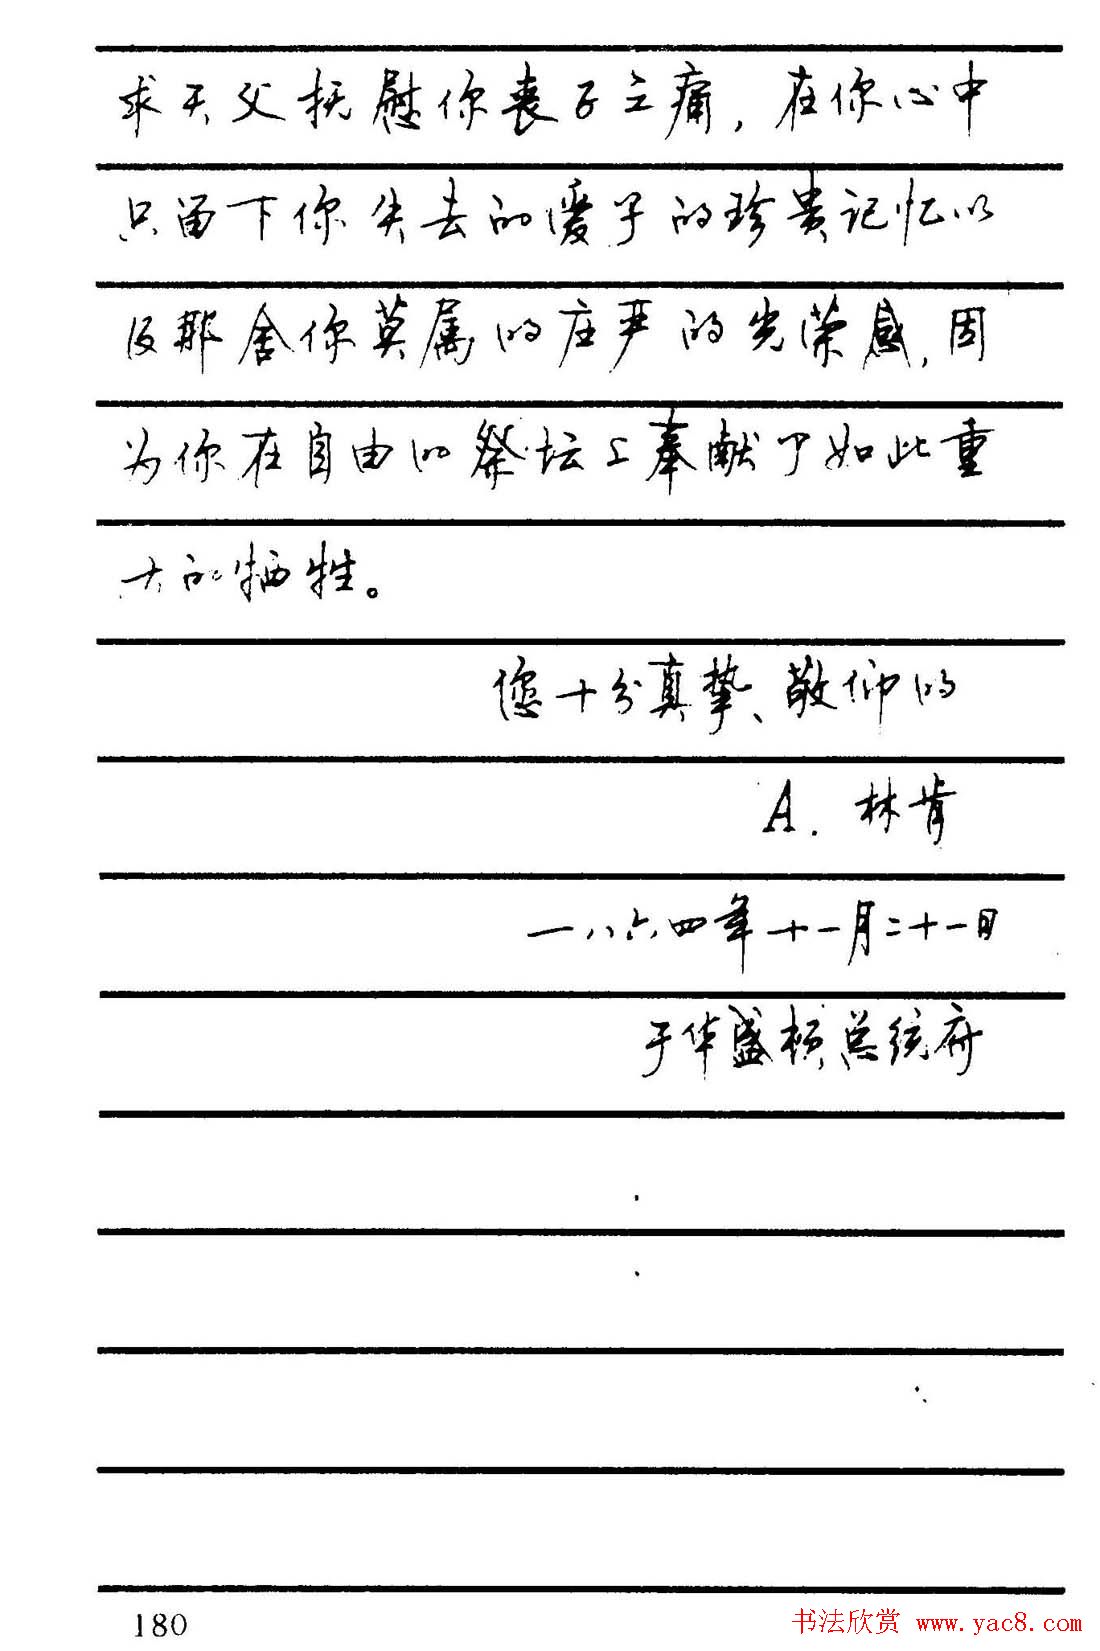 求天父抚慰你丧子之痛，在你心中
只留下你失去的爱子的珍贵记忆以
及那舍你莫属的庄严的光荣感，因
为你在自由的祭坛上奉献了如此重
大的牺牲。
您十分真挚、敬仰的
A. 林肯
一八六四年十一月二十一日
于华盛顿总统府
180
书法欣赏 www.yac8.com